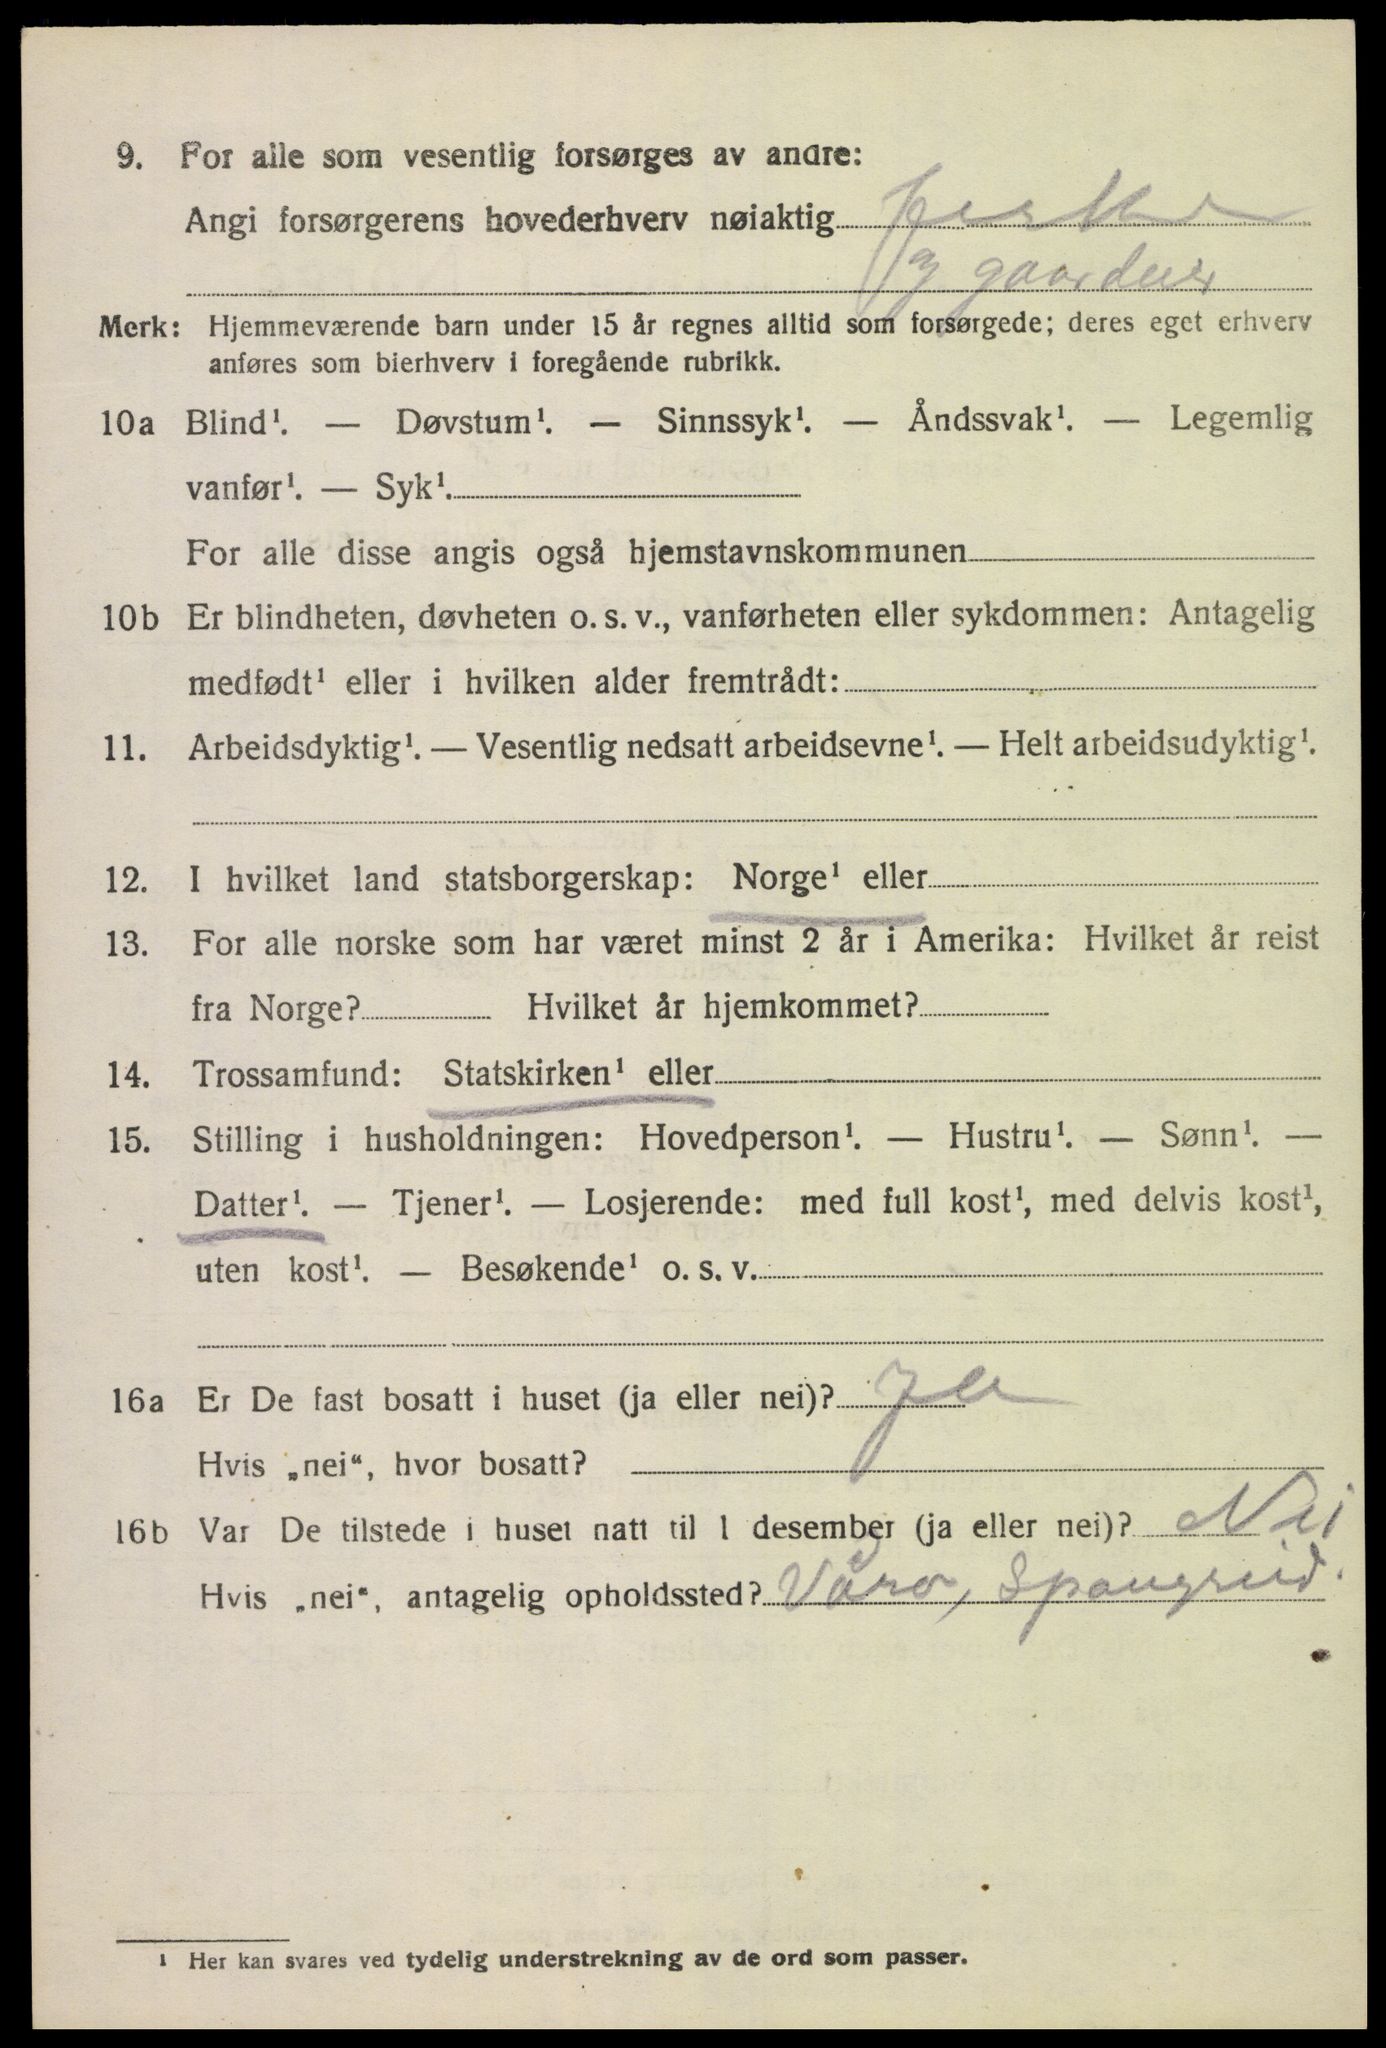 9. For alle som vesentlig forsørges av andre:
Angi forsørgerens hovederhverv nøiaktig fisker
og gaardeier
Merk: Hjemmeværende barn under 15 år regnes alltid som forsørgede; deres eget erhverv
anføres som bierhverv i foregående rubrikk.
10a Blind¹. — Døvstum¹. — Sinnssyk¹. — Åndssvak¹. — Legemlig
vanfør¹. — Syk¹.
For alle disse angis også hjemstavnskommunen
10b Er blindheten, døvheten o. s. v., vanførheten eller sykdommen: Antagelig
medfødt¹ eller i hvilken alder fremtrådt:
11. Arbeidsdyktig¹. — Vesentlig nedsatt arbeidsevne¹. — Helt arbeidsudyktig¹.
12. I hvilket land statsborgerskap: Norge¹ eller
13. For alle norske som har været minst 2 år i Amerika: Hvilket år reist
fra Norge? Hvilket år hjemkommet?
14. Trossamfund: Statskirken¹ eller
15. Stilling i husholdningen: Hovedperson¹. — Hustru¹. — Sønn¹. —
Datter¹. — Tjener¹. — Losjerende: med full kost¹, med delvis kost¹,
uten kost¹. — Besøkende¹ o. s. v.
16a Er De fast bosatt i huset (ja eller nei)? Ja
Hvis „nei“, hvor bosatt?
16b Var De tilstede i huset natt til 1 desember (ja eller nei)? Nei
Hvis „nei“, antagelig opholdssted? Våro, Spangreid.
¹ Her kan svares ved tydelig understrekning av de ord som passer.